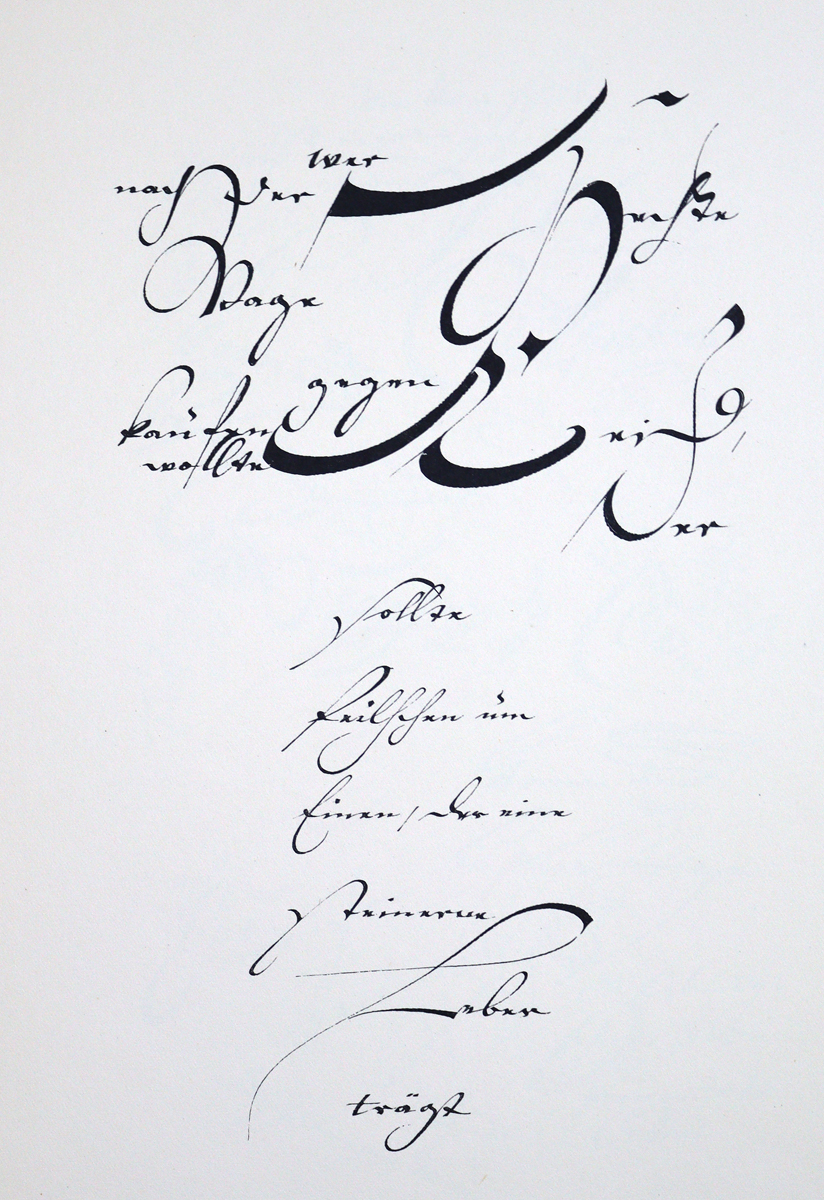 wer
nach der Hechte
Wage
gegen
kaufen
wollte
der
sollte
feilschen um
Einen, der eine
steinerne
Leber
trägt